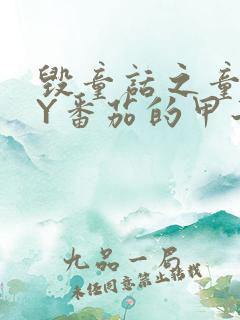 毁童话之童
Y番茄的甲
九品一局
未经同意禁止转载